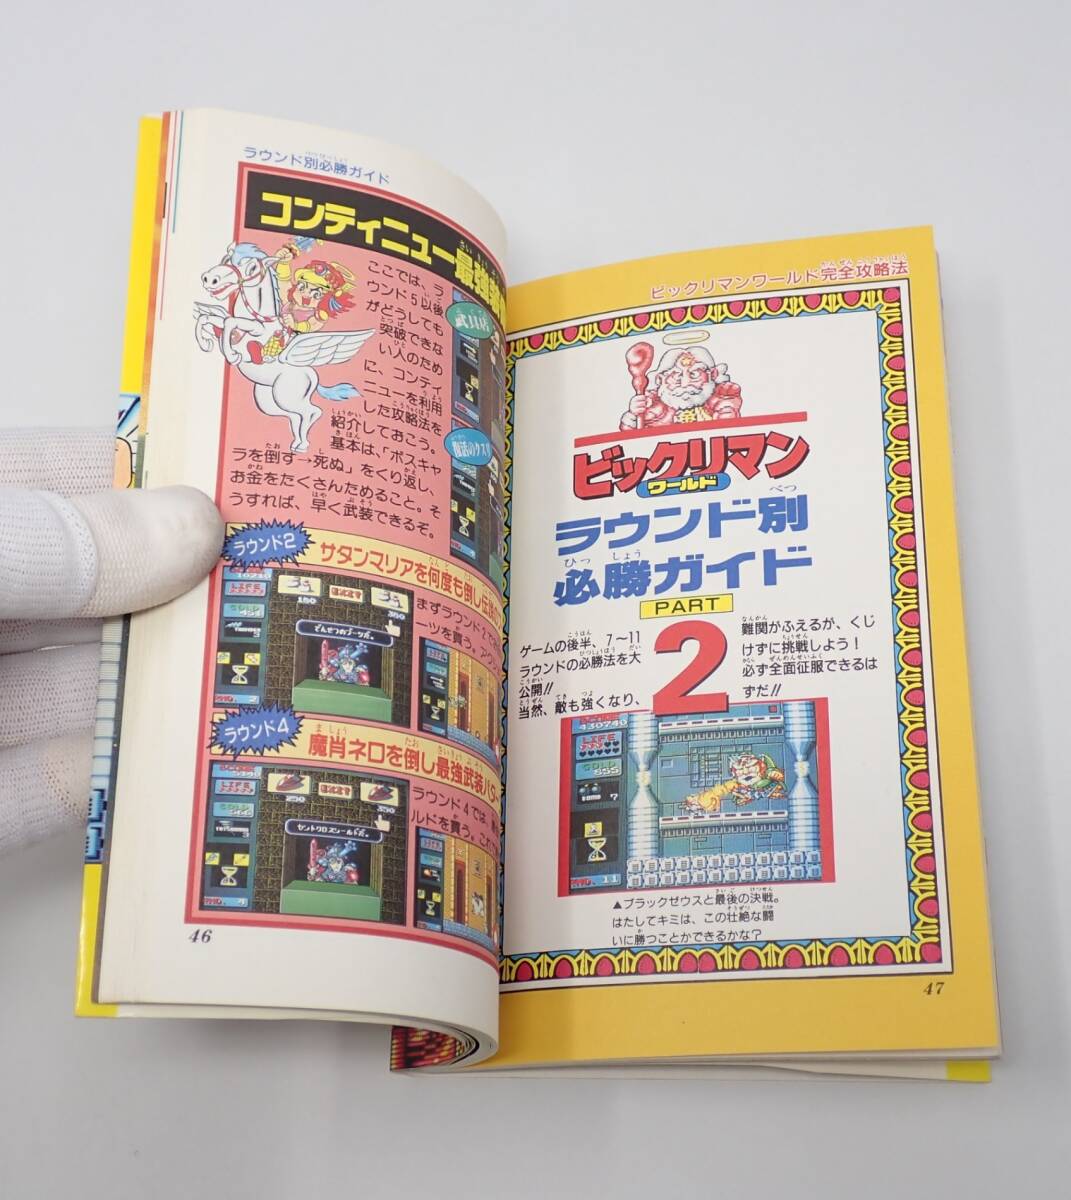 ラウンド別必勝ガイド
コンティニュー最強
ここでは、ラ
ウンド5以後
がどうしても
突破できな
い人のため
に、コンティ
ニューを利用
した攻略法を
紹介しておこう。
基本は、「ボスキャ
ラを倒す→死ぬ」をくり返し、
お金をたくさんためること。そ
うすれば、早く武装できるぞ。
武具店
復活のクスリ
ラウンド2
サタンマリアを何度も倒し伝
まずラウンド2で
ーツを買う。アク
LIFE
GOLD
でんせつのブーツだ。
ラウンド4
魔肖ネロを倒し最強武装
ラウンド4では、
ルドを買う。これ
SCORE
LIFE
GOLD
セントクロスシールドだ。
46
ビックリマンワールド完全攻略法
ビックリマン
ワールド
ラウンド別
必勝ガイド
PART
2
ゲームの後半、7〜11
ラウンドの必勝法を大
公開!!
当然、敵も強くなり、
難関がふえるが、くじ
けずに挑戦しよう!
必ず全面征服できるは
ずだ!!
SCORE
430740
LIFE
GOLD
555
7
RND. 11
▲ブラックゼウスと最後の決戦。
はたしてキミは、この壮絶な闘
いに勝つことができるかな?
47